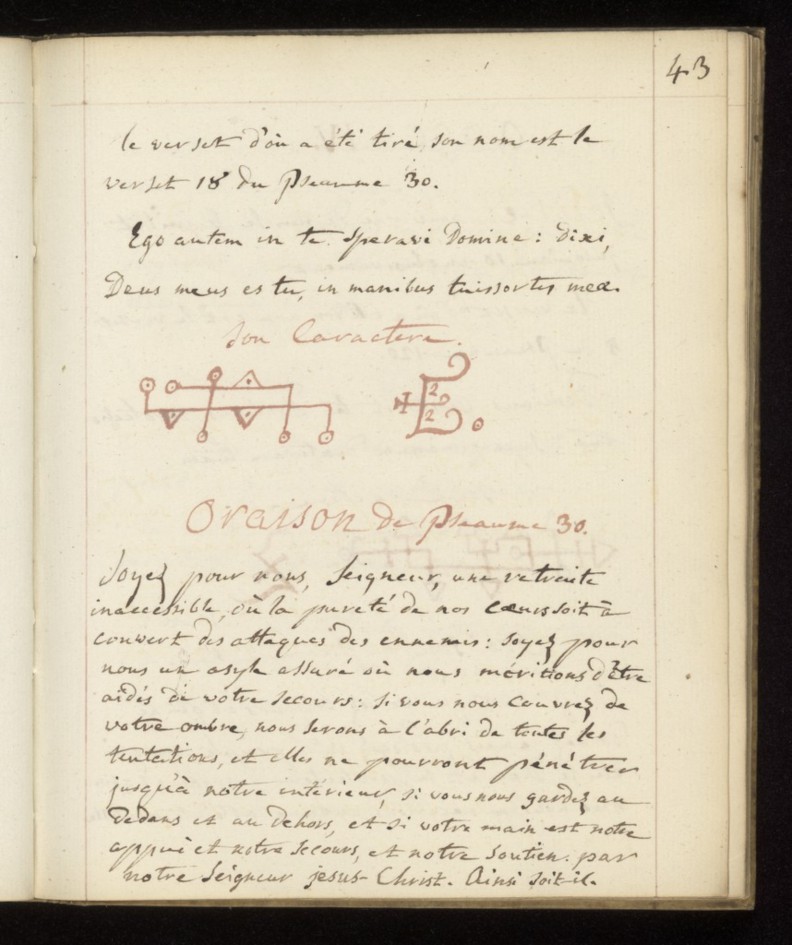 43
le verset d'où a été tiré son nom est le
verset 18 du Pseaume 30.
Ego autem in te speravi Domine : dixi,
Deus meus es tu, in manibus tuis sortes meæ.
Son Caractere.
2
2
Oraison de Pseaume 30.
Soyez pour nous, Seigneur, une retraite
inaccessible, où la pureté de nos cœurs soit à
couvert des attaques des ennemis : soyez pour
nous un asyle assuré où nous méritions d'être
aidés de votre secours : si vous nous couvrez de
votre ombre, nous serons à l'abri de toutes les
tentations, et elles ne pourront pénétrer
jusqu'à notre intérieur, si vous nous gardez au
dedans et au dehors, et si votre main est notre
appui et notre secours, et notre soutien. par
notre Seigneur jesus-Christ. Ainsi soit-il.